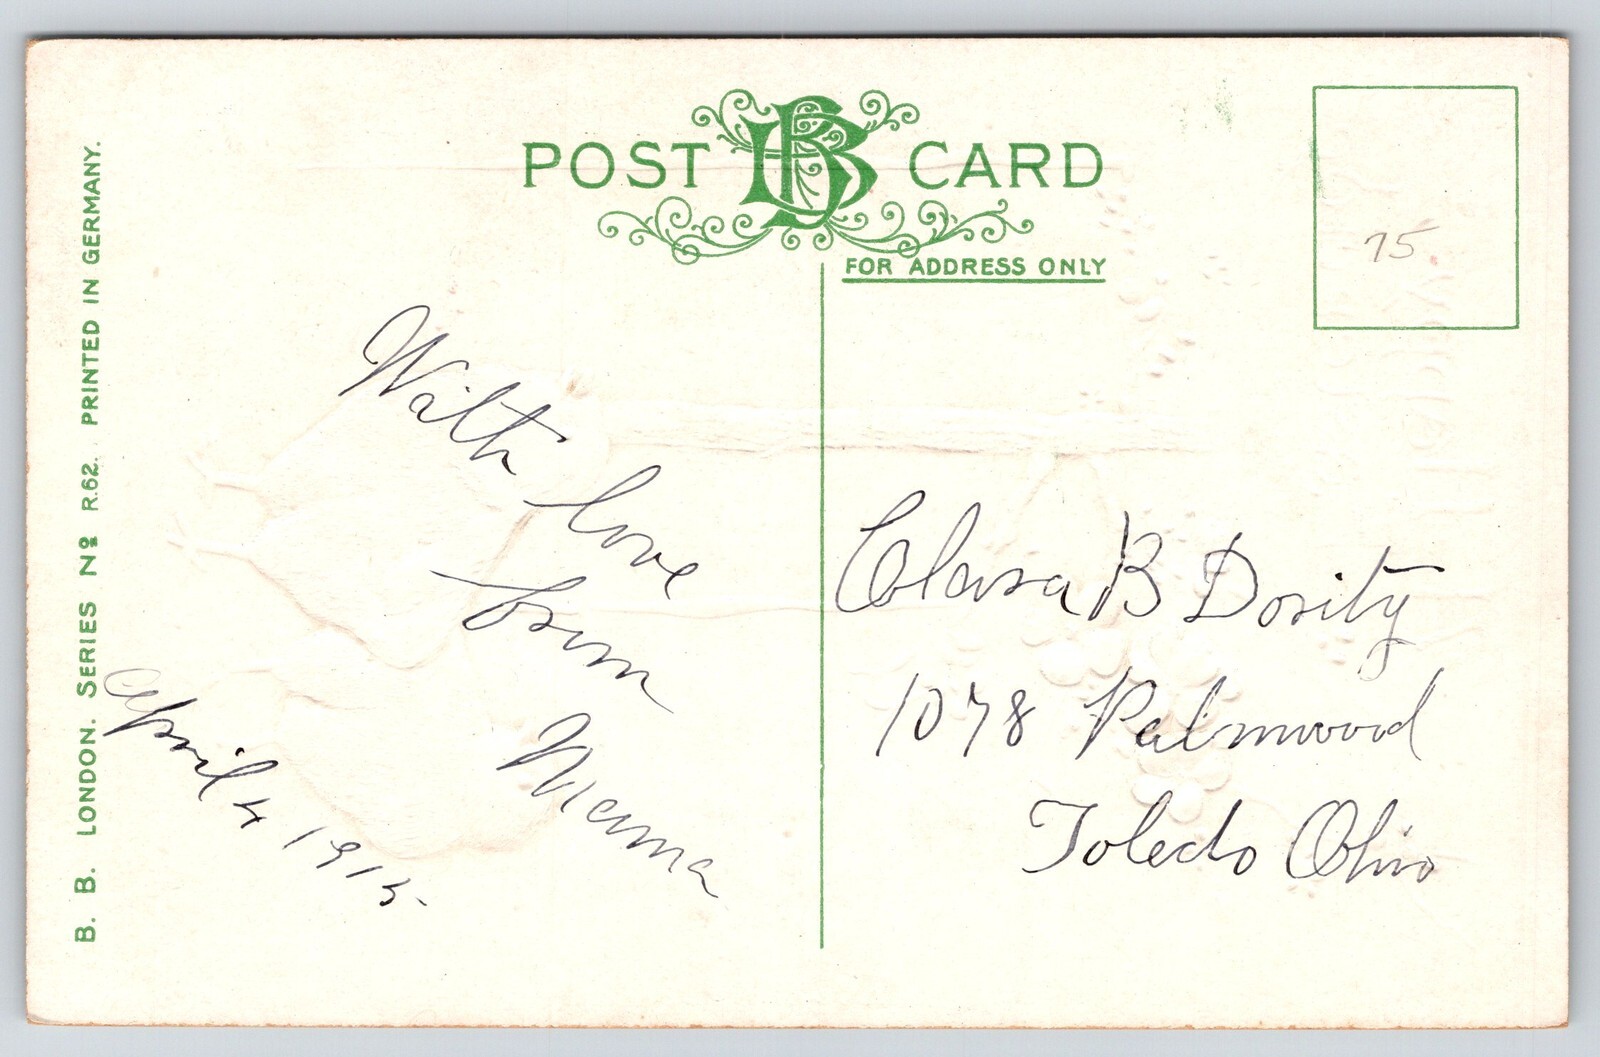 POST BB CARD
FOR ADDRESS ONLY
75
With love
from
Mama
April 4 1915.
Clara B Dority
1078 Palmwood
Toledo Ohio
B. B. LONDON. SERIES Nº R.62. PRINTED IN GERMANY.